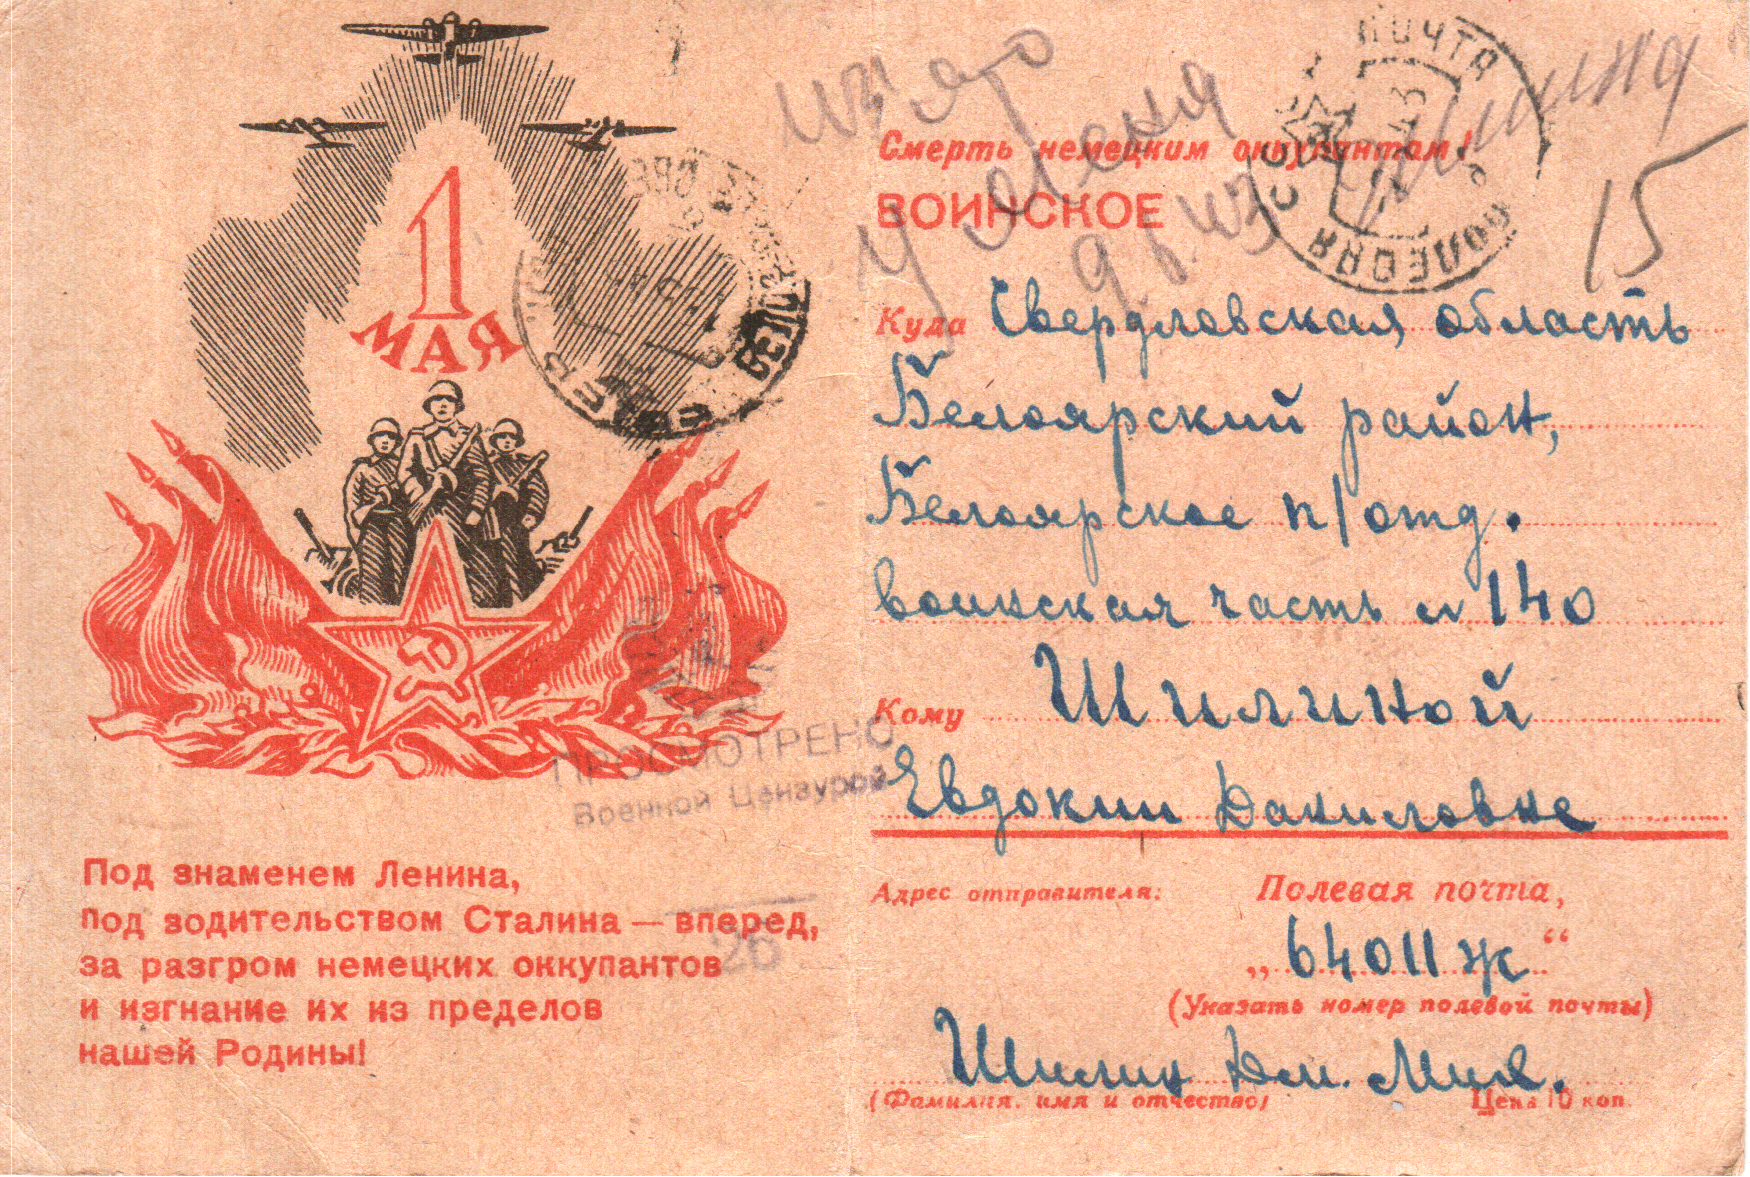 1
МАЯ
ПРОСМОТРЕНО
Военной Цензурой
26
Под знаменем Ленина,
под водительством Сталина — вперед,
за разгром немецких оккупантов
и изгнание их из пределов
нашей Родины!
ПОЧТА
СССР
ПОЛЕВАЯ
15
Смерть немецким оккупантам!
ВОИНСКОЕ
Куда Свердловская область
Белоярский район,
Белоярское п/отд.
воинская часть № 140
Кому Шилиной
Евдокии Даниловне
Адрес отправителя: Полевая почта,
„64011ж“
(Указать номер полевой почты)
Шилин Дм. Мих.
(Фамилия, имя и отчество) Цена 10 коп.